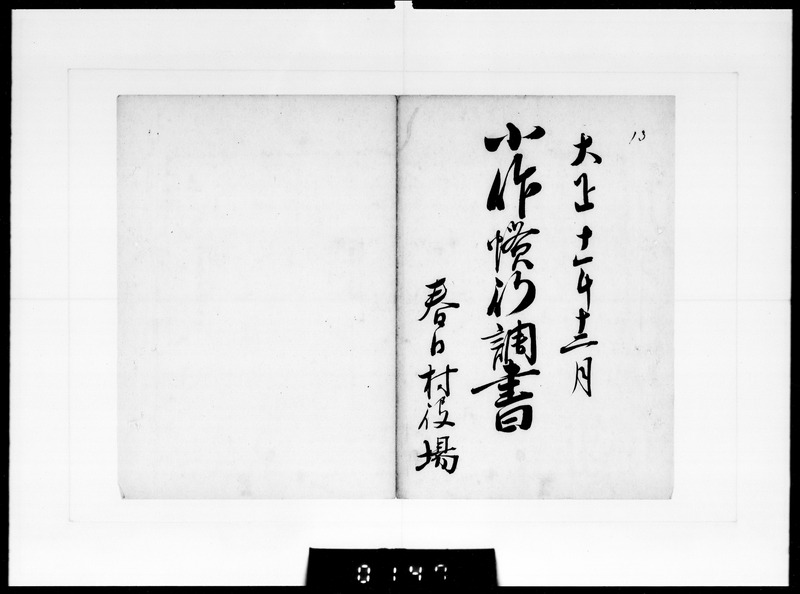 13
大正十一年十二月
小作慣行調書
春日村役場
0147